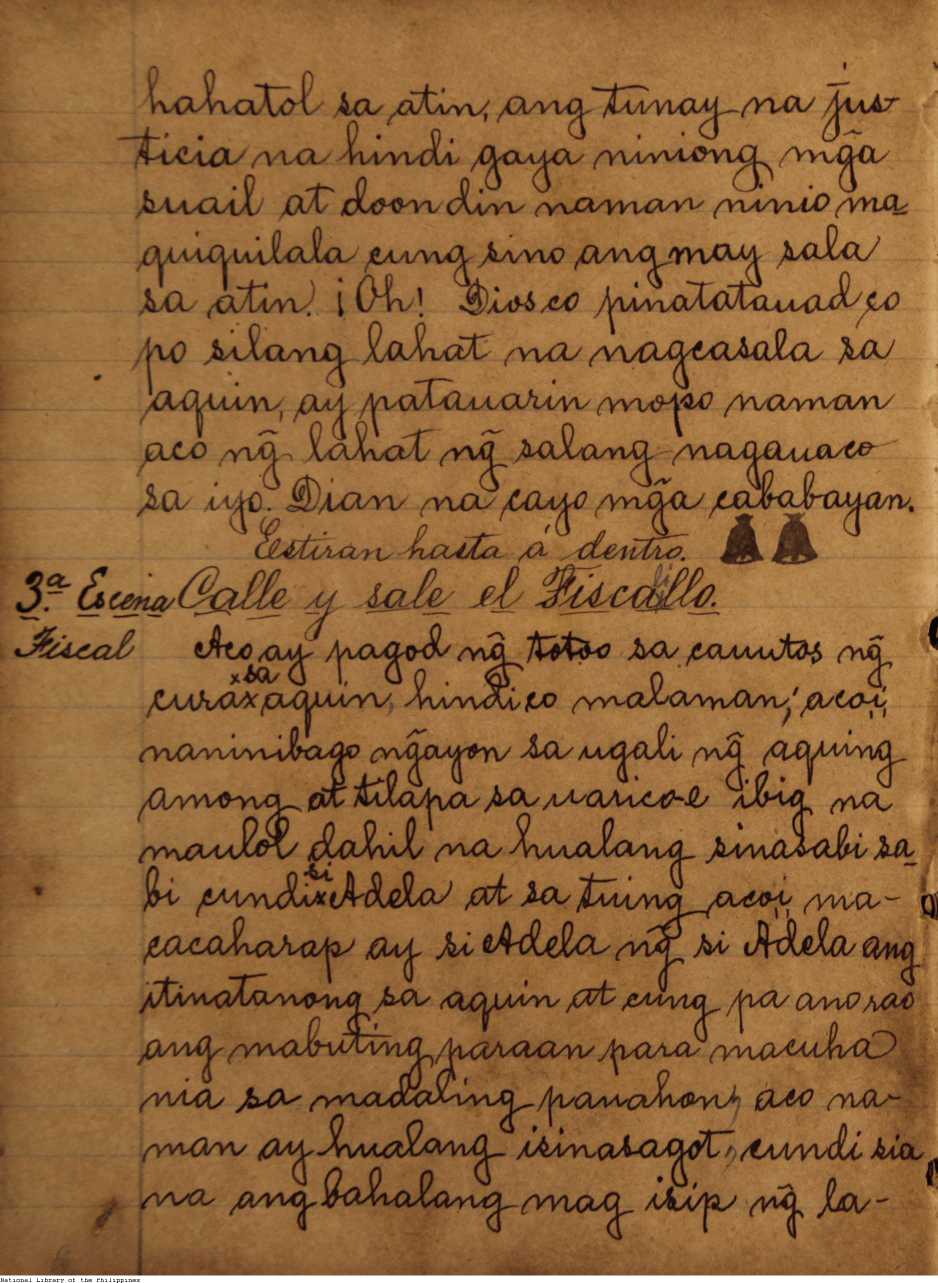 hahatol sa atin, ang tunay na jus-
ticia na hindi gaya niniong mg̃a
suail at doon din naman ninio ma-
quiquilala cung sino ang may sala
sa atin. ¡Oh! Dios co pinatatauad co
po silang lahat na nagcasala sa
aquin, ay patauarin mo po naman
aco ng̃ lahat ng̃ salang nagaua co
sa iyo. Dian na cayo mg̃a cababayan.
Estiran hasta á dentro.
3.ª Escena Calle y sale el Fiscalillo.
Fiscal Aco ay pagod ng̃ totoo sa cauutos ng̃
cura sa aquin, hindi co malaman; acoi,
naninibago ng̃ayon sa ugali ng̃ aquing
among at tila pa sa uari co-e ibig na
maulol dahil na hualang sinasabi sa-
bi cundi si Adela at sa tuing acoi ma-
cacaharap ay si Adela ng̃ si Adela ang
itinatanong sa aquin at cung pa ano rao
ang mabuting paraan para macuha
nia sa madaling panahon, aco na-
man ay hualang isinasagot, cundi sia
na ang bahalang mag isip ng̃ la-
National Library of the Philippines